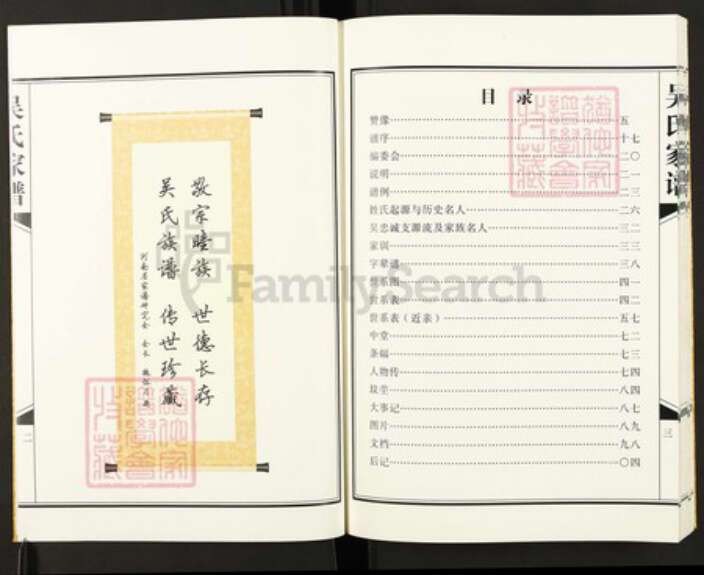 吴氏家谱
敬宗睦族 世德长存
吴氏族谱 传世珍藏
河南省家谱研究会 会长
二
FamilySearch
吴氏家谱
目 录
赞像……五
谱序……十七
编委会……二〇
说明……二一
谱例……二三
姓氏起源与历史名人……二六
吴忠诚支源流及家族名人……三二
家训……三三
字辈谱……三八
世系图……四一
世系表……四二
世系表（近亲）……五七
中堂……七二
条幅……七三
人物传……七四
坟茔……八六
大事记……八七
图片……八九
文档……九八
后记……〇四
三